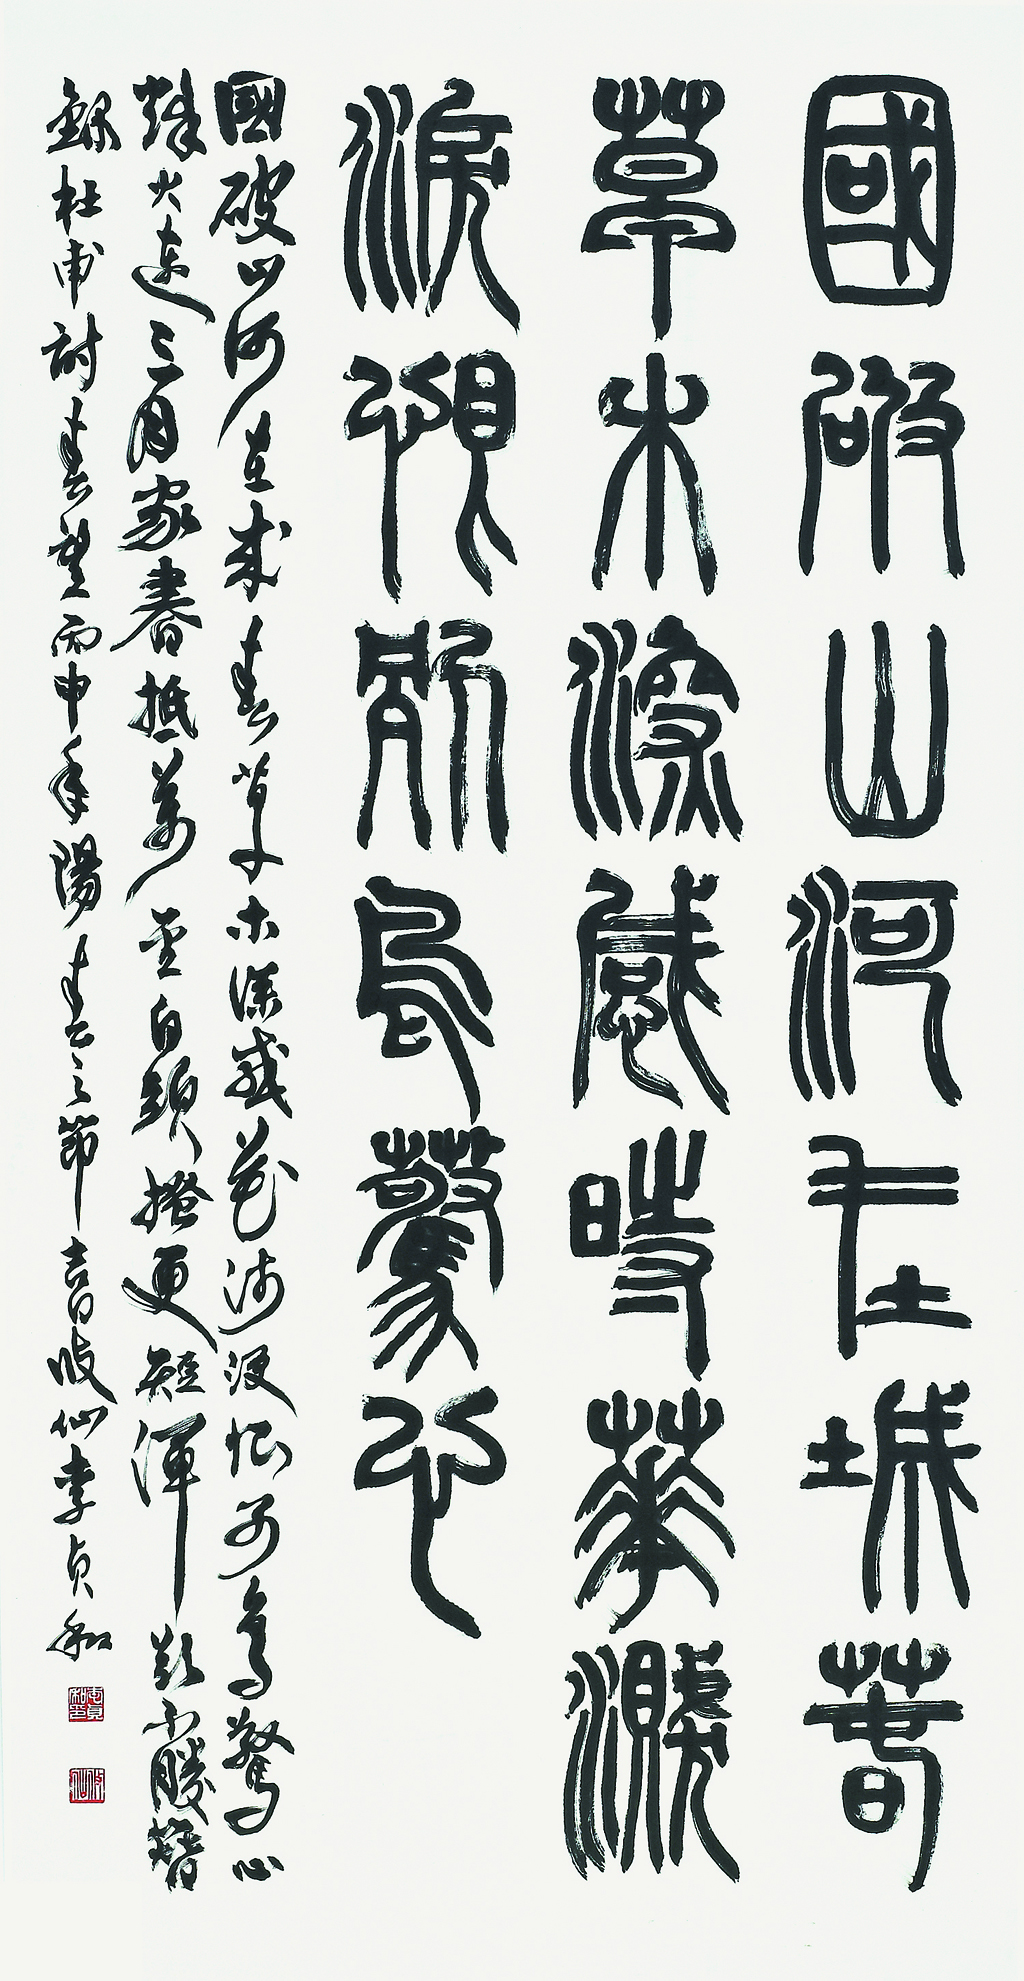 國破山河在城春
草木深感時華濺
淚恨別鳥驚心
國破山河在城春草木深感花濺淚恨別鳥驚心
烽火連三月家書抵萬金白頭搔更短渾欲不勝簪
錄杜甫詩春望丙申年陽春之節書岐仙李貞和
李貞和印